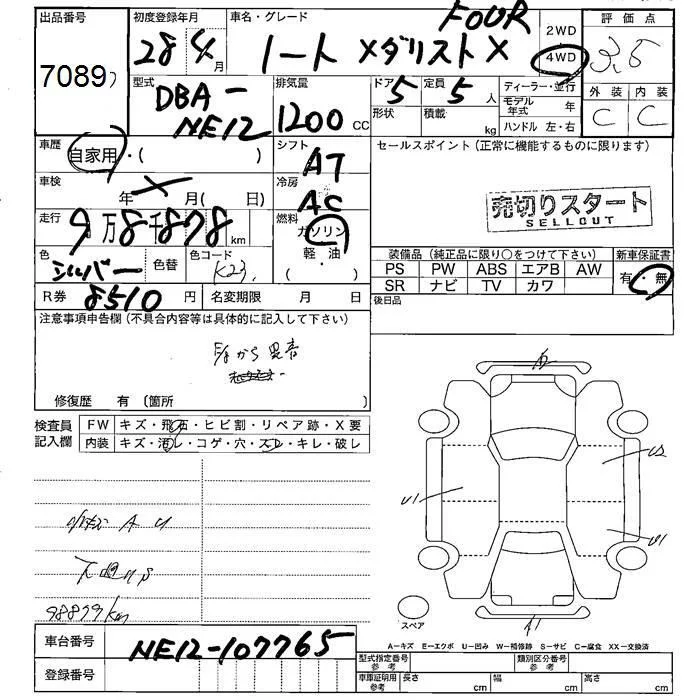 出品番号 初度登録年月 車名・グレード 評価点
7089
28 4月 ノート メダリストX FOUR 2WD 4WD 3.5
外装 内装
C C
型式 排気量 ドア 定員 ディーラー・並行
DBA-NE12 1200 CC 5 5人 モデル年式 年
形状 積載 kg ハンドル 左・右
車歴 自家用・( ) シフト AT セールスポイント (正常に機能するものに限ります)
車検 年 月( 日) 冷房 AC
売切りスタート
SELLOUT
走行 9万8千878km 燃料 ガソリン
軽・油
( )
色 シルバー 色替 色コード K23
装備品(純正品に限り○をつけて下さい) 新車保証書
PS PW ABS エアB AW 有・無
SR ナビ TV カワ
R券 8510円 名変期限 月 日 後日品
注意事項申告欄(不具合内容等は具体的に記入して下さい)
から 異音
修復歴 有 〔箇所 〕
検査員記入欄 FW キズ・飛石・ヒビ割・リペア跡・X要
内装 キズ・汚レ・コゲ・穴・スレ・キレ・破レ
A U
98899km
U1
U2
A1
スペア
A-キズ E-エクボ U-凹み W-補修跡 S-サビ C-腐食 XX-交換済
車台番号 NE12-107765
登録番号
型式指定番号 参考 類別区分番号 参考
車庫証明用 参考 長さ cm 幅 cm 高さ cm